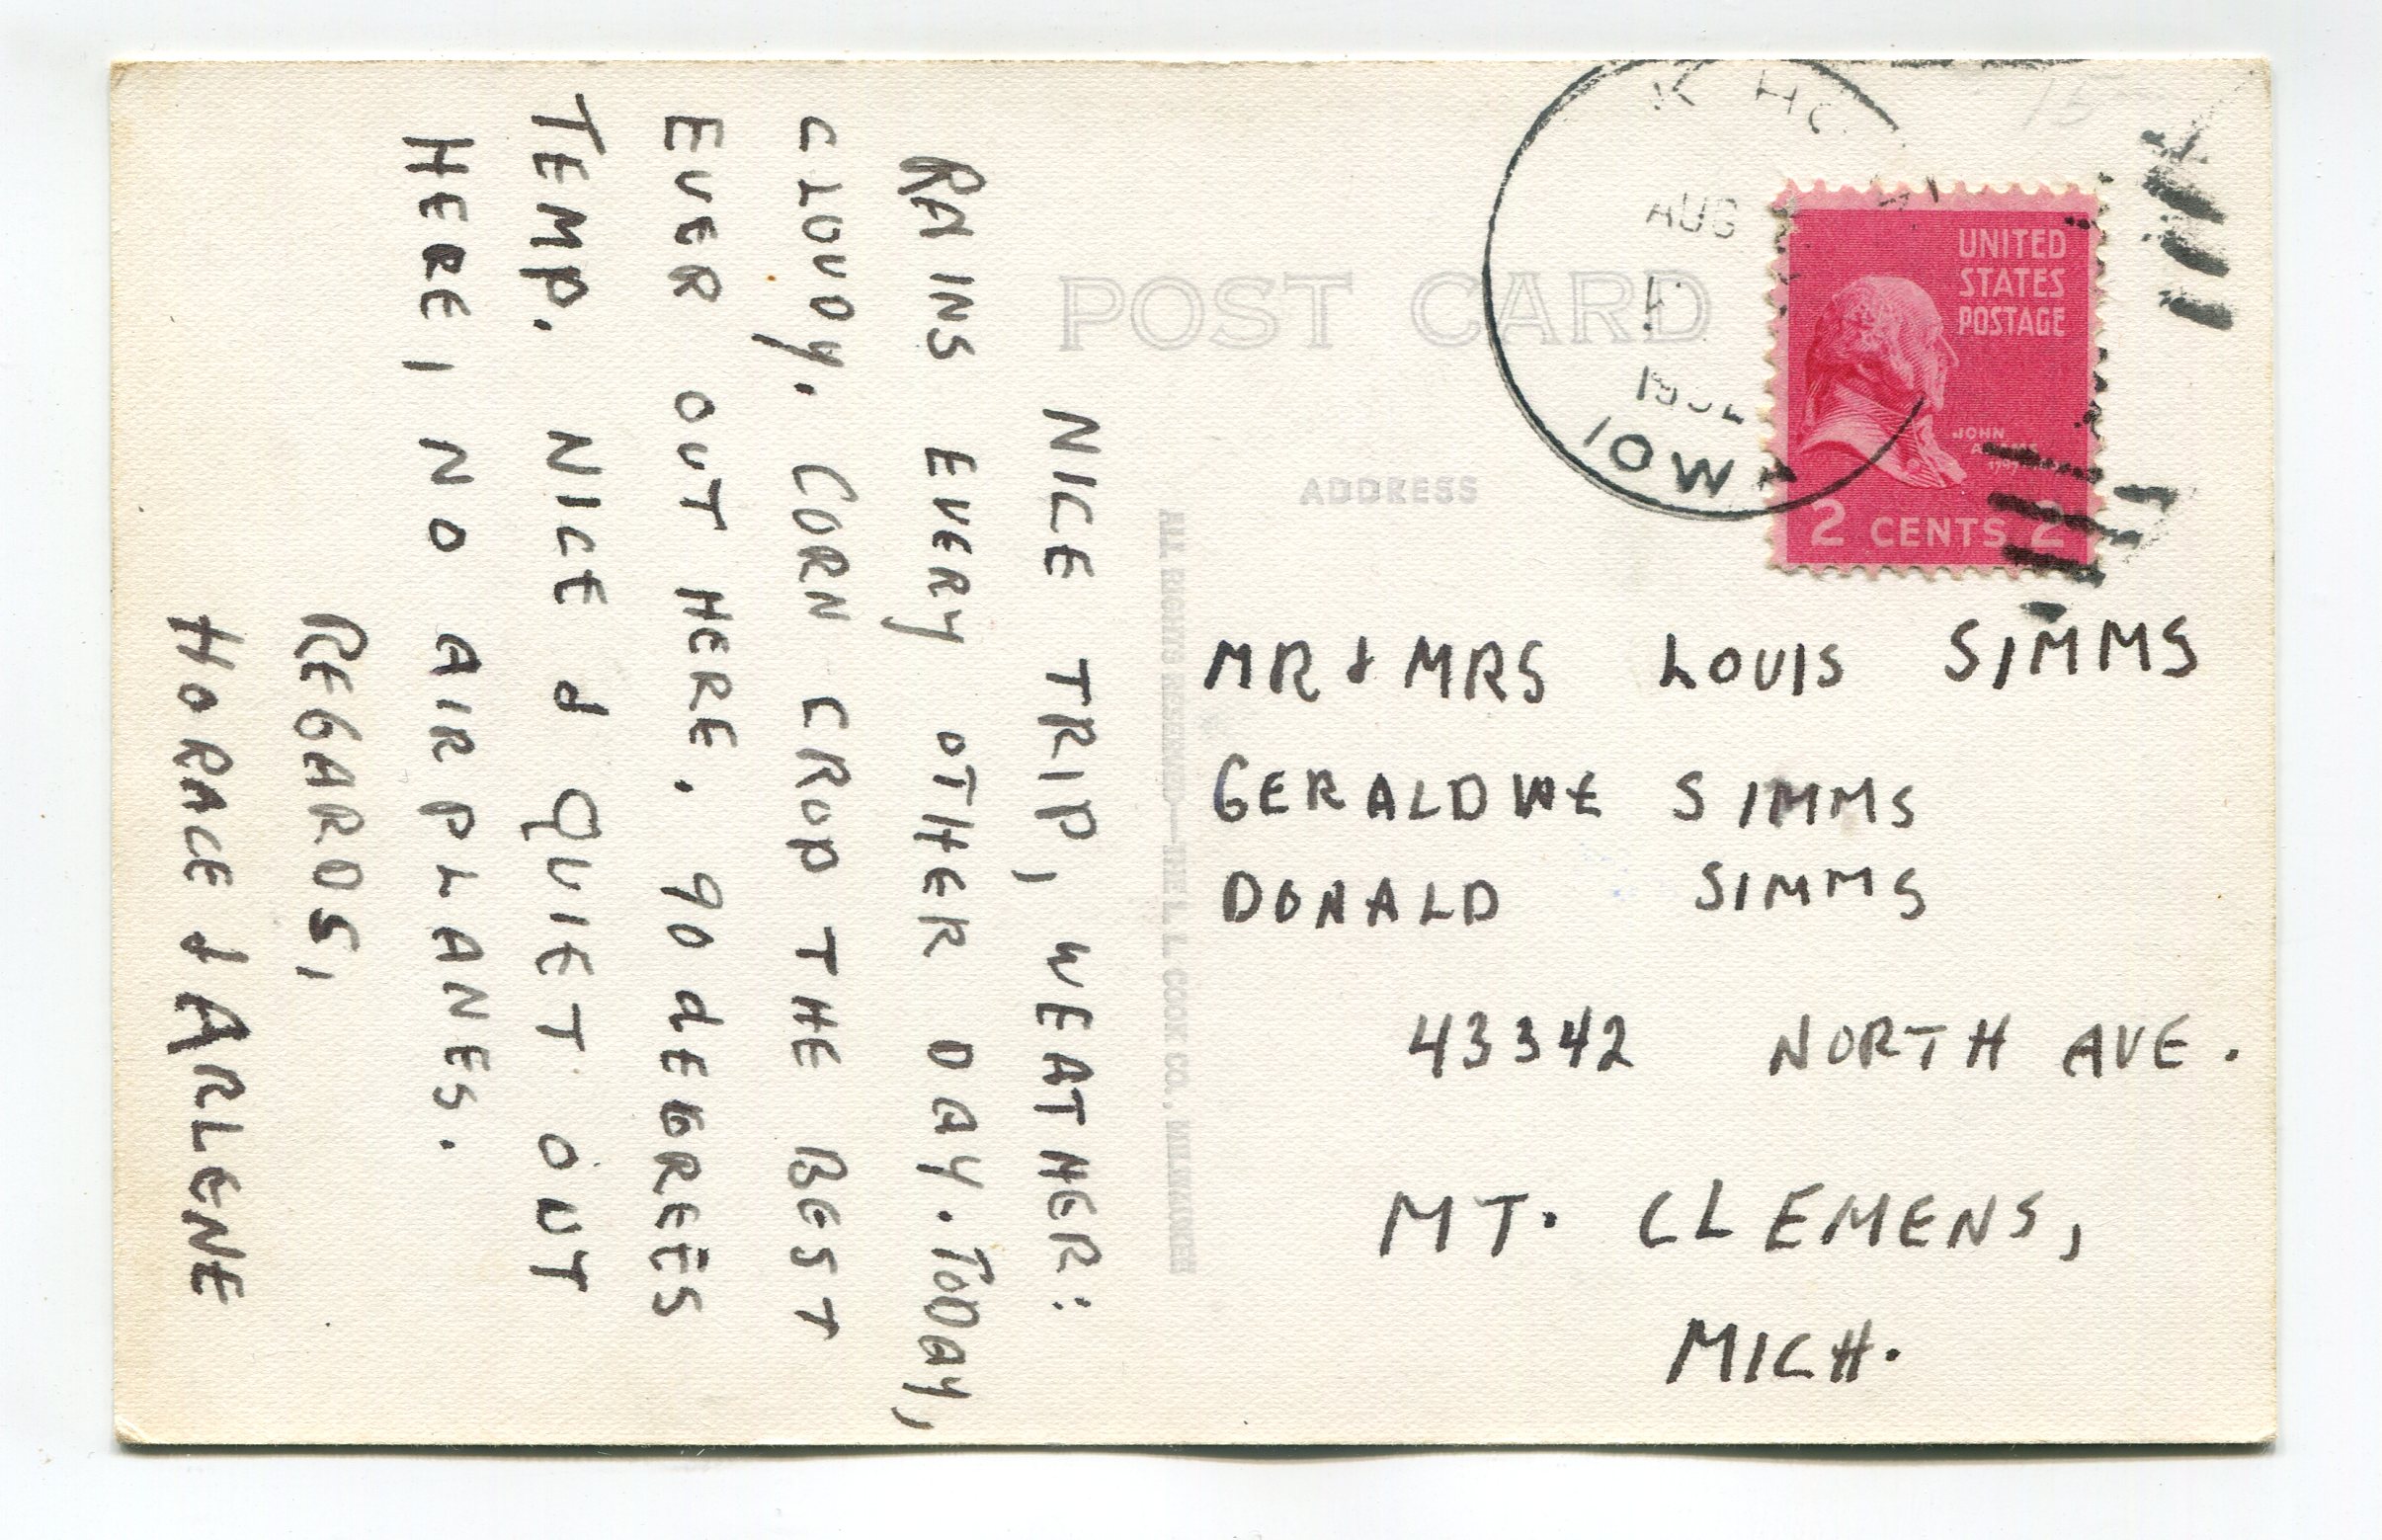 NICE TRIP, WEATHER:
RAINS EVERY OTHER DAY. TODAY,
CLOUDY. CORN CROP THE BEST
EVER OUT HERE. 90 dEGREES
TEMP. NICE & QUIET OUT
HERE, NO AIRPLANES.
REGARDS,
HORACE & ARLENE
POST CARD
ADDRESS
ALL RIGHTS RESERVED—THE L. L. COOK CO., MILWAUKEE
AUG
IOWA
UNITED
STATES
POSTAGE
JOHN
2 CENTS 2
MR & MRS LOUIS SIMMS
GERALDINE SIMMS
DONALD SIMMS
43342 NORTH AVE.
MT. CLEMENS,
MICH.